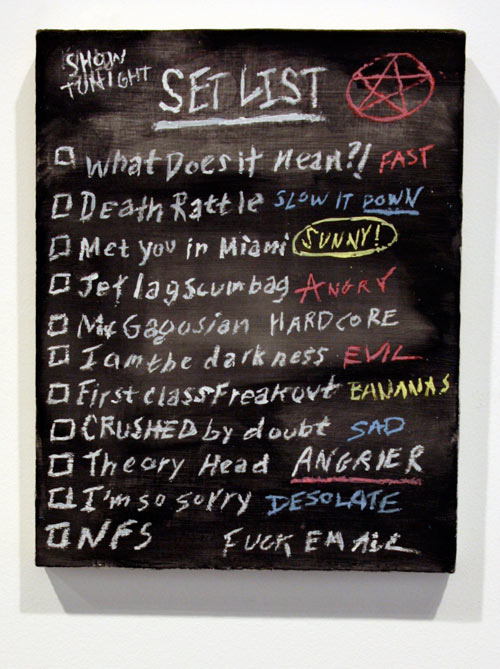 SHOW
TONIGHT
SET LIST
What Does it Mean?! FAST
Death Rattle SLOW IT DOWN
Met you in Miami SUNNY!
Jet lag scumbag ANGRY
Mr Gagosian HARDCORE
I am the darkness EVIL
First class Freakout BANANAS
CRUSHED by doubt SAD
Theory Head ANGRIER
I'm so sorry DESOLATE
NFS FUCK EMAIL